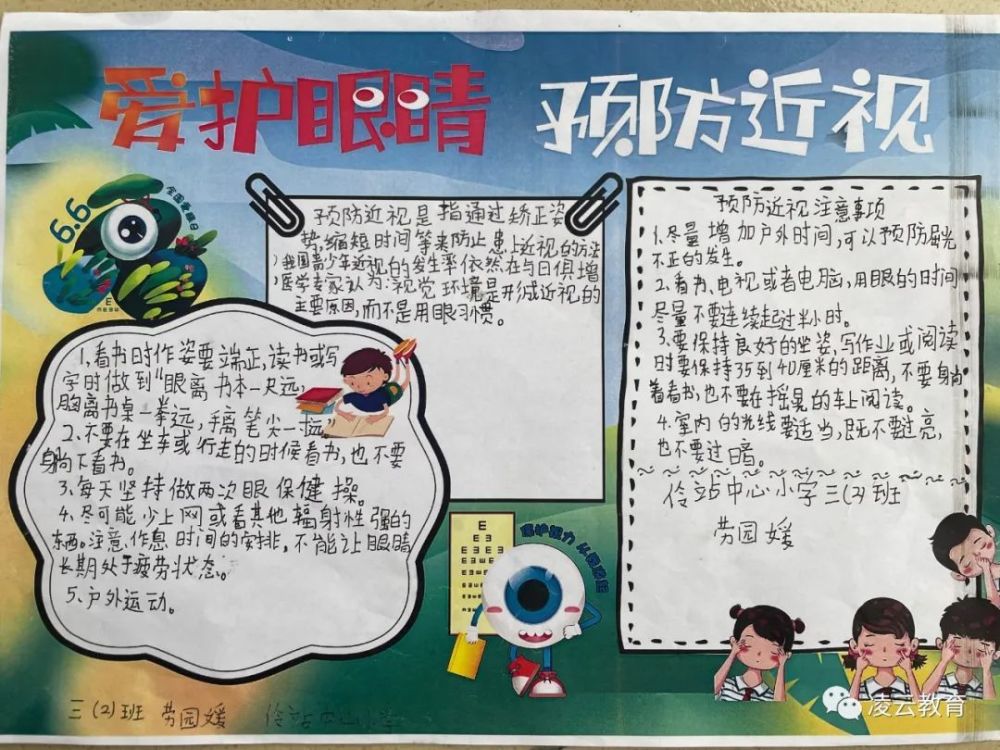 爱护眼睛 预防近视
6.6
全国爱眼日
预防近视是指通过矫正姿
势,缩短时间等来防止患上近视的方法
,我国青少年近视的发生率依然在与日俱增
,医学专家认为:视觉环境是形成近视的
主要原因,而不是用眼习惯。
1.看书时作姿要端正,读书或写
字时做到"眼离书本一尺远,
胸离书桌一拳远,手离笔尖一寸远,
2.不要在坐车或行走的时候看书,也不要
躺下看书。
3.每天坚持做两次眼保健操。
4.尽可能少上网或看其他辐射性强的
东西。注意作息时间的安排,不能让眼睛
长期处于疲劳状态。
5.户外运动。
预防近视注意事项
1.尽量增加户外时间,可以预防屈光
不正的发生。
2.看书、电视或者电脑,用眼的时间
尽量不要连续超过半小时。
3.要保持良好的坐姿,写作业或阅读
时要保持35到40厘米的距离,不要躺
着看书,也不要在摇晃的车上阅读。
4.室内的光线要适当,既不要过亮,
也不要过暗。
伶站中心小学三(2)班
劳园媛
E
E E
E E E E
保护视力
三(2)班 劳园媛 伶站中心小学
凌云教育